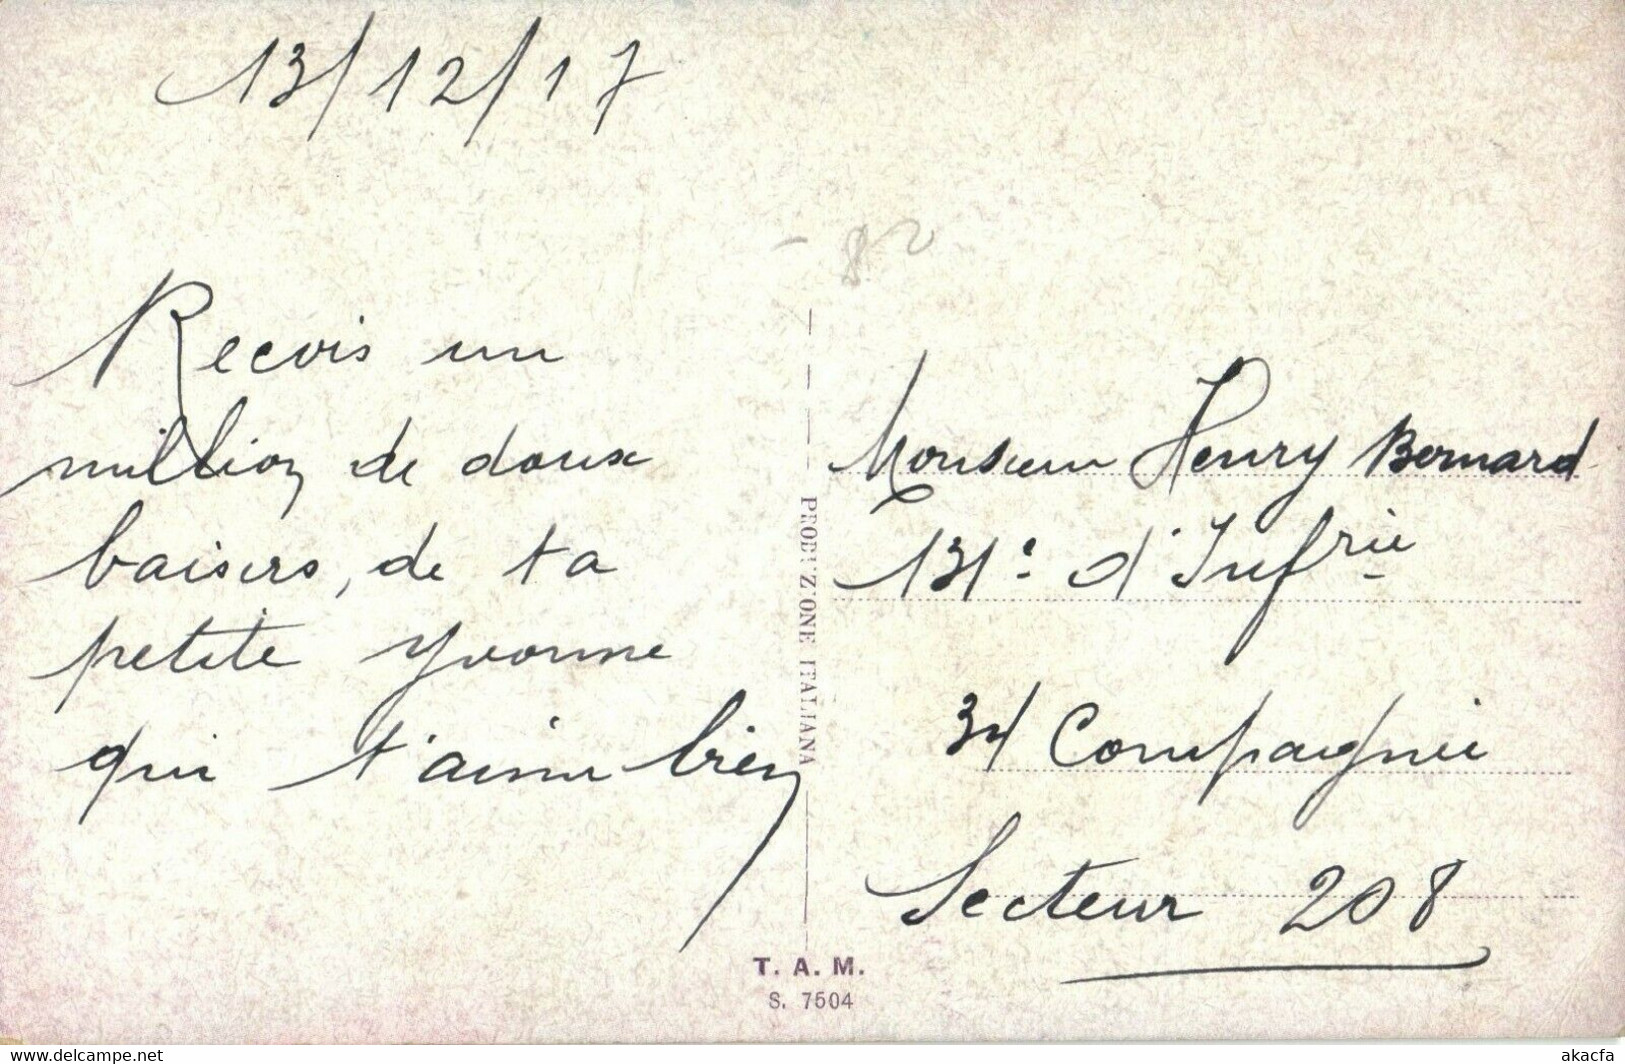 13/12/17
Recois un
million de doux
baisers, de ta
petite Yvonne
qui t'aime bien
Monsieur Henry Bernard
131e d'Infrie
34 Compagnie
Secteur 208
PRODUZIONE ITALIANA
T. A. M.
S. 7504
www.delcampe.net
akacfa